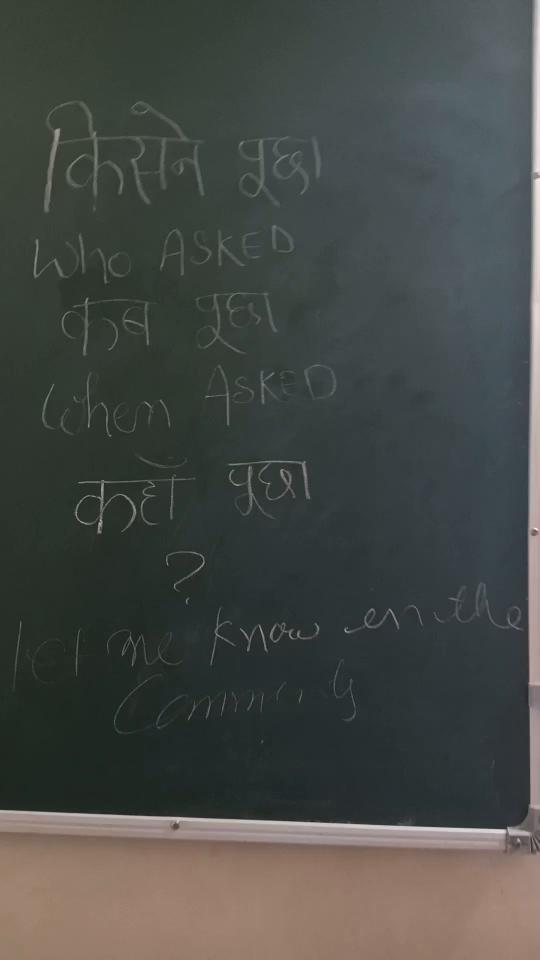 किसने पूछा
Who ASKED
कब पूछा
When ASKED
कहाँ पूछा
?
let me know in the
Comments